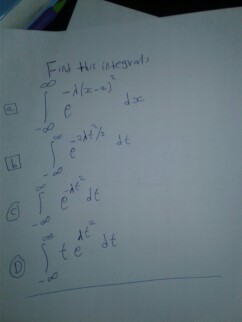 Find this integrals
a ∫_{-∞}^{∞} e^{-λ(x-2)^2} dx
b ∫_{-∞}^{∞} e^{-2λt^2/2} dt
C ∫_{-∞}^{∞} e^{-λt^2} dt
D ∫_{-∞}^{∞} t e^{λt^2} dt